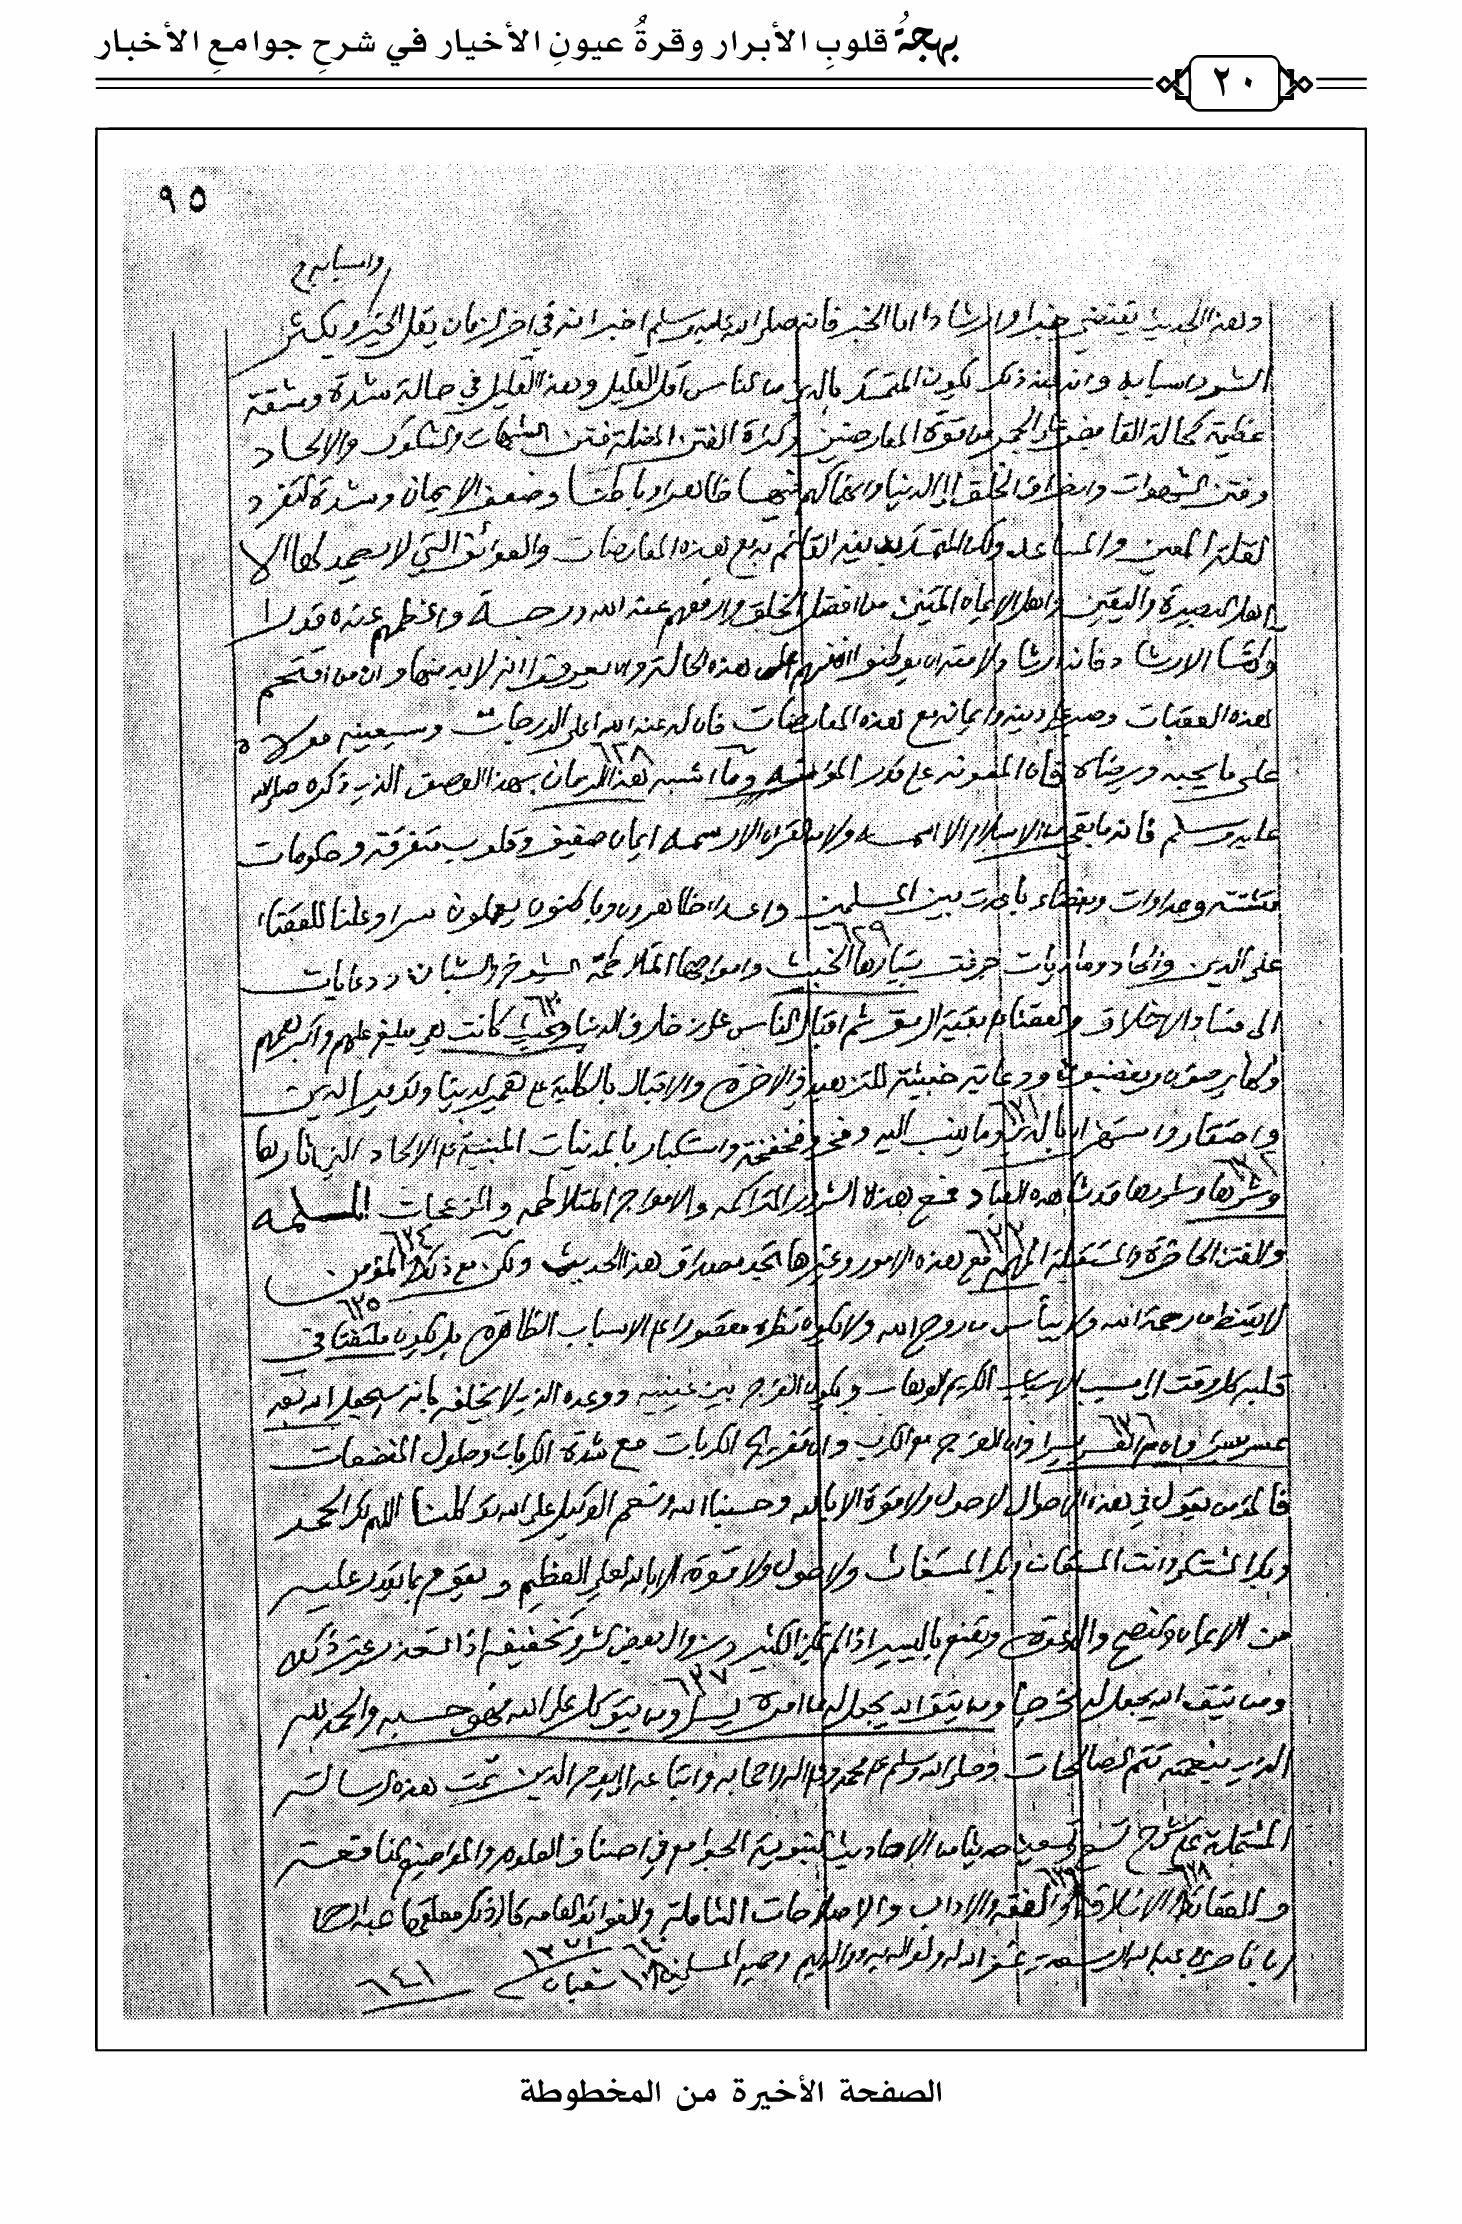 بهجةُ قلوبِ الأبرار وقرةُ عيونِ الأخيار في شرحِ جوامعِ الأخبار
٢٠
٩٥
واسبابه
وهذا الحديث يقتضي خبرا وارشادا اما الخبر فانه صلى الله عليه وسلم اخبر انه في اخر الزمان يقل الخير ويكثر
الشر واسبابه وانه عند ذلك يكون المتمسك بالدين من الناس اقل القليل وهذا القليل في حالة شدة ومشقة
عظيمة كحالة القابض على الجمر من قوة المعارضين وكثرة الفتن المضلة فتن الشبهات والشكوك والالحاد
وفتن الشهوات وانصراف الخلق الى الدنيا وانهماكهم فيها ظاهرا وباطنا وضعف الايمان وشدة التفرد
لقلة المعين والمساعد ولكن المتمسك بدينه القائم بدفع هذه المعارضات والعوائق التي لا يصمد لها الا
اهل البصيرة واليقين واهل الايمان المتين من افضل الخلق وارفعهم عند الله درجة واعظمهم عنده قدرا
واما الارشاد فانه ارشاد لامته ان يوطنوا انفسهم على هذه الحالة وان يعرفوا انه لا بد منها وان من اقتحم
هذه العقبات وصبر على دينه وايمانه مع هذه المعارضات فان له عند الله اعلى الدرجات وسيعينه مولاه
على ما يحبه ويرضاه فان المعونة على قدر المؤنة وما اشبه هذا الزمان بهذا الوصف الذي ذكره صلى الله
٦٢٨
عليه وسلم فانه ما بقي من الاسلام الا اسمه ولا من القران الا رسمه ايمان ضعيف وقلوب متفرقة وحكومات
متشتتة وعداوات وبغضاء باعدت بين المسلمين واعداء ظاهرون وباطنون يعملون سرا وعلنا للقضاء
٦٢٩
على الدين والحاد وماديات جرفت بتيارها الخبيث وامواجها المتلاطمة الشيوخ والشبان ودعايات
الى فساد الاخلاق والقضاء على بقية الرمق ثم اقبال الناس على زخارف الدنيا وبحيث كانت هي مبلغ علمهم واكبر همهم
٦٣٠
ولها يرضون ويغضبون ودعاية خبيثة للتزهيد في الاخرة والاقبال بالكلية على تعمير الدنيا وتدمير الدين
واحتقار واستهزاء بالدين وما ينسب اليه وفخر وفخفخة واستكبار بالمدنيات المبنية على الالحاد التي اثارها
٦٣١
وشررها وشرورها قد شاهده العباد فمع هذه الشرور المتراكمة والامواج المتلاطمة والمزعجات الملمة
٦٣٢
والفتن الحاضرة والمستقبلة المدلهمة مع هذه الامور وغيرها تجد مصداق هذا الحديث ولكن مع ذلك فالمؤمن
٦٣٣
٦٣٤
لا يقنط من رحمة الله ولا ييأس من روح الله ولا يكون نظره مقصورا على الاسباب الظاهرة بل يكون ملتفتا في
٦٣٥
قلبه كل وقت الى مسبب الاسباب الكريم الوهاب ويكون الفرج بين عينيه ووعده الذي لا يخلفه بانه سيجعل الله بعد
عسر يسرا وان مع العسر يسرا وان الفرج مع الكرب وان تفريج الكربات مع شدة الكربات وحلول المفضعات
٦٣٦
فالمؤمن يقول في هذه الاحوال لا حول ولا قوة الا بالله وحسبنا الله ونعم الوكيل على الله توكلنا اللهم لك الحمد
واليك المشتكى وانت المستعان وبك المستغاث ولا حول ولا قوة الا بالله العلي العظيم ويقوم بما يقدر عليه
من الايمان والنصح والدعوة ويقنع باليسير اذا لم يمكن الكثير وبزوال بعض الشر وتخفيفه اذا تعذر غير ذلك
ومن يتق الله يجعل له مخرجا ومن يتق الله يجعل له من امره يسرا ومن يتوكل على الله فهو حسبه والحمد لله
٦٣٧
الذي بنعمته تتم الصالحات وصلى الله وسلم على محمد وعلى اله واصحابه واتباعه الى يوم الدين تمت هذه الرسالة
المشتملة على شرح تسع وتسعين حديثا من الاحاديث النبوية الجوامع في اصناف العلوم والمواضيع النافعة
والعقائد والاخلاق والفقه والاداب والاصلاحات الشاملة والفوائد العامة قال ذلك معلقها عبد الرحمن
٦٣٨
٦٣٩
بن ناصر بن عبد الله السعدي غفر الله له ولوالديه ووالديهم وجميع المسلمين ١٠ شعبان ١٣٧١
٦٤٠
٦٤١
الصفحة الأخيرة من المخطوطة